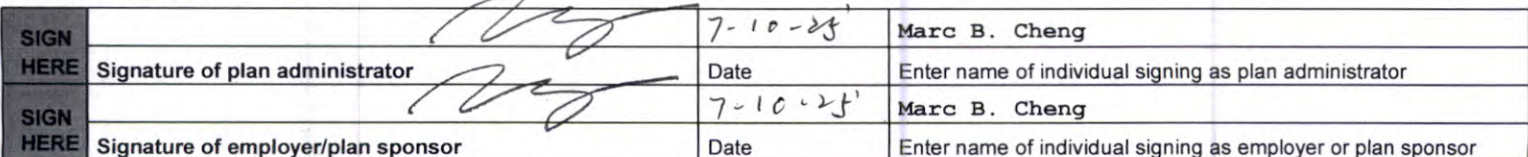 SIGN HERE
7-10-25' Marc B. Cheng
Signature of plan administrator Date Enter name of individual signing as plan administrator
SIGN HERE
7-10-25' Marc B. Cheng
Signature of employer/plan sponsor Date Enter name of individual signing as employer or plan sponsor